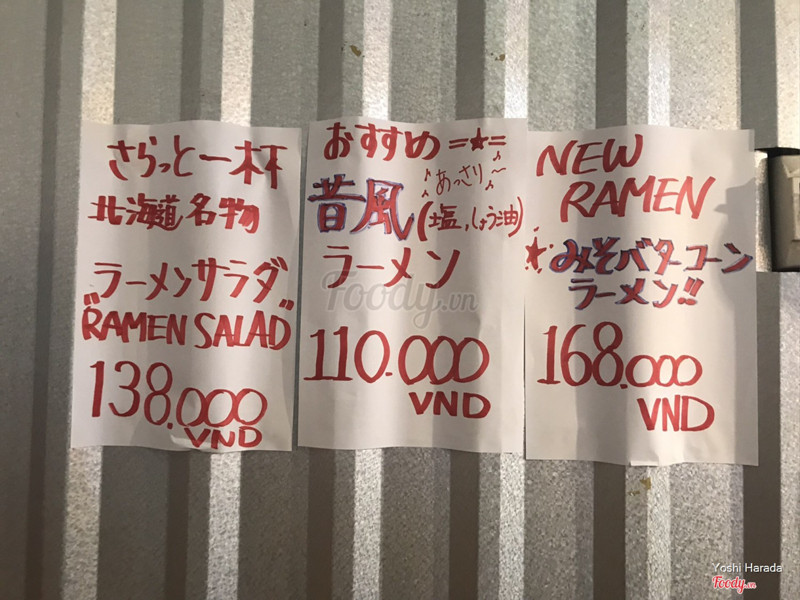 さらっと一杯
北海道名物
„ラーメンサラダ”
RAMEN SALAD
138.000
VND
おすすめ =★=
♪あっさり〜♪
昔風(塩、しょう油)
ラーメン
110.000
VND
NEW
RAMEN
★みそバターコーン
ラーメン!!!
168.000
VND
Foody.vn
Yoshi Harada
Foody.vn